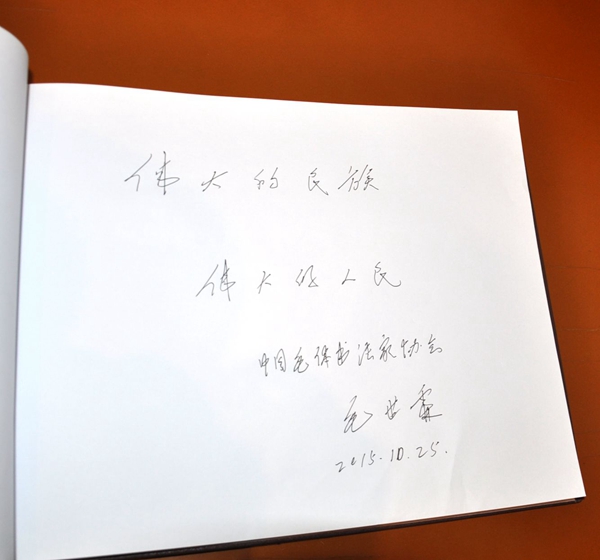 伟大的民族
伟大的人民
中国毛体书法家协会
毛世霖
2015.10.25.